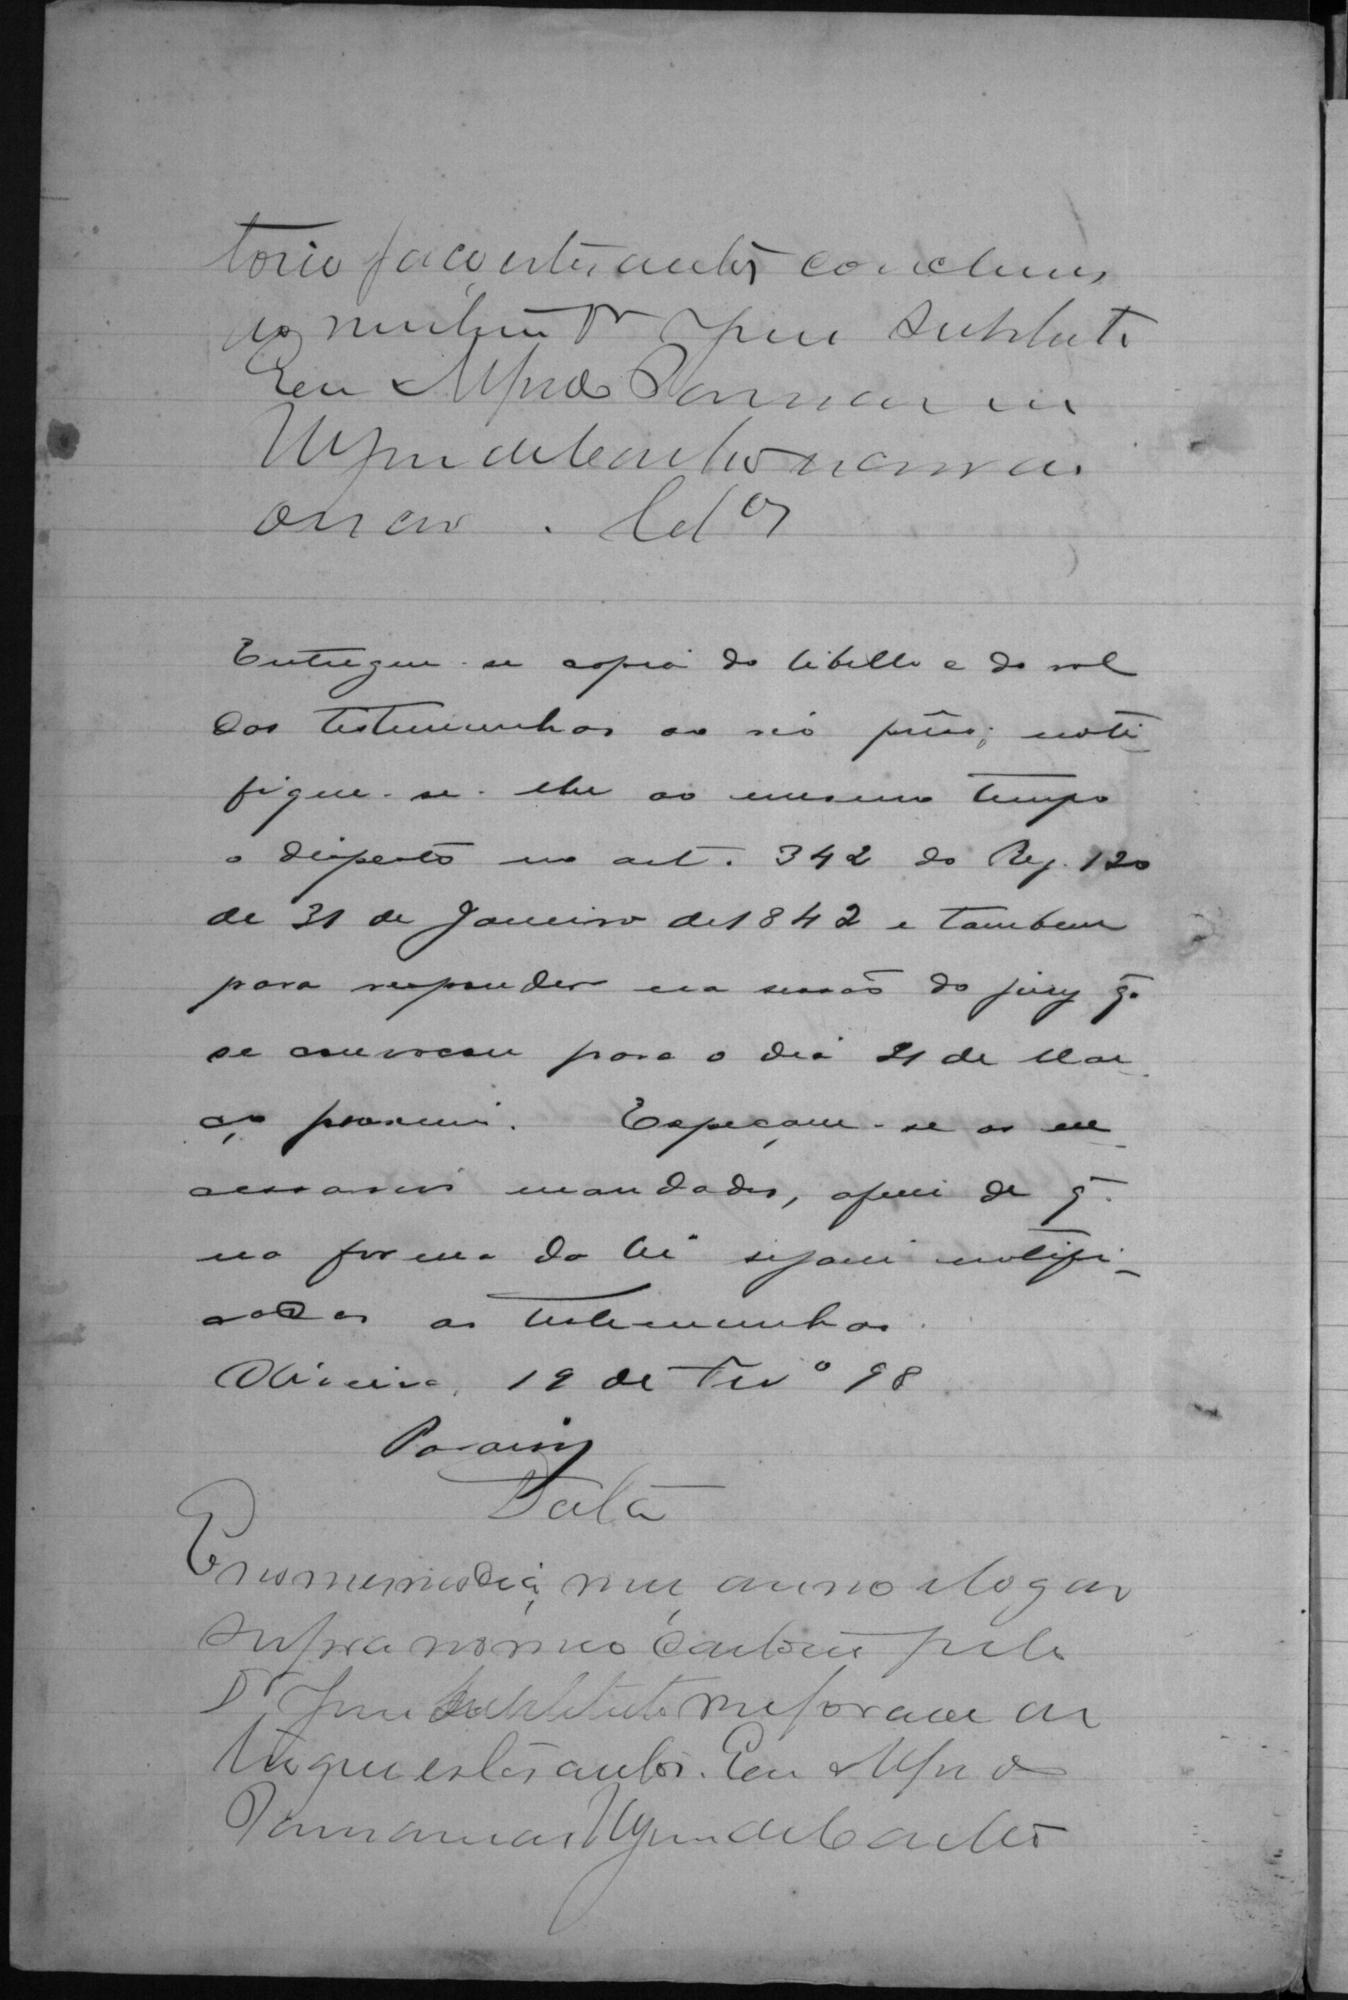 torio faço estes autos conclusos
ao meritissimo Dr Juiz Substituto
Eu Alfredo
de Castro
escrivão. Cls
Entregue-se copia do libello e do rol
das testemunhas ao réo preso; noti
fique-se-lhe ao mesmo tempo
o disposto no art. 342 do Reg. 120
de 31 de Janeiro de 1842 e tambem
para responder na sessão do jury q.
se convocou para o dia 21 de Mar
ço proximo. Expeçam-se os ne
cessarios mandados, afim de q.
na forma da lei sejam notifi-
cadas as testemunhas.
Oliveira, 19 de Fevº 98
Data
E no mesmo dia, mez, anno e logar
supra no meo Cartorio pelo
Dr Juiz Substituto me foram en
tregues estes autos. Eu Alfredo
de Castro